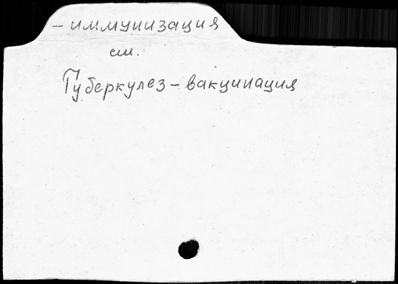 - иммунизация
см.
Туберкулез - вакцинация